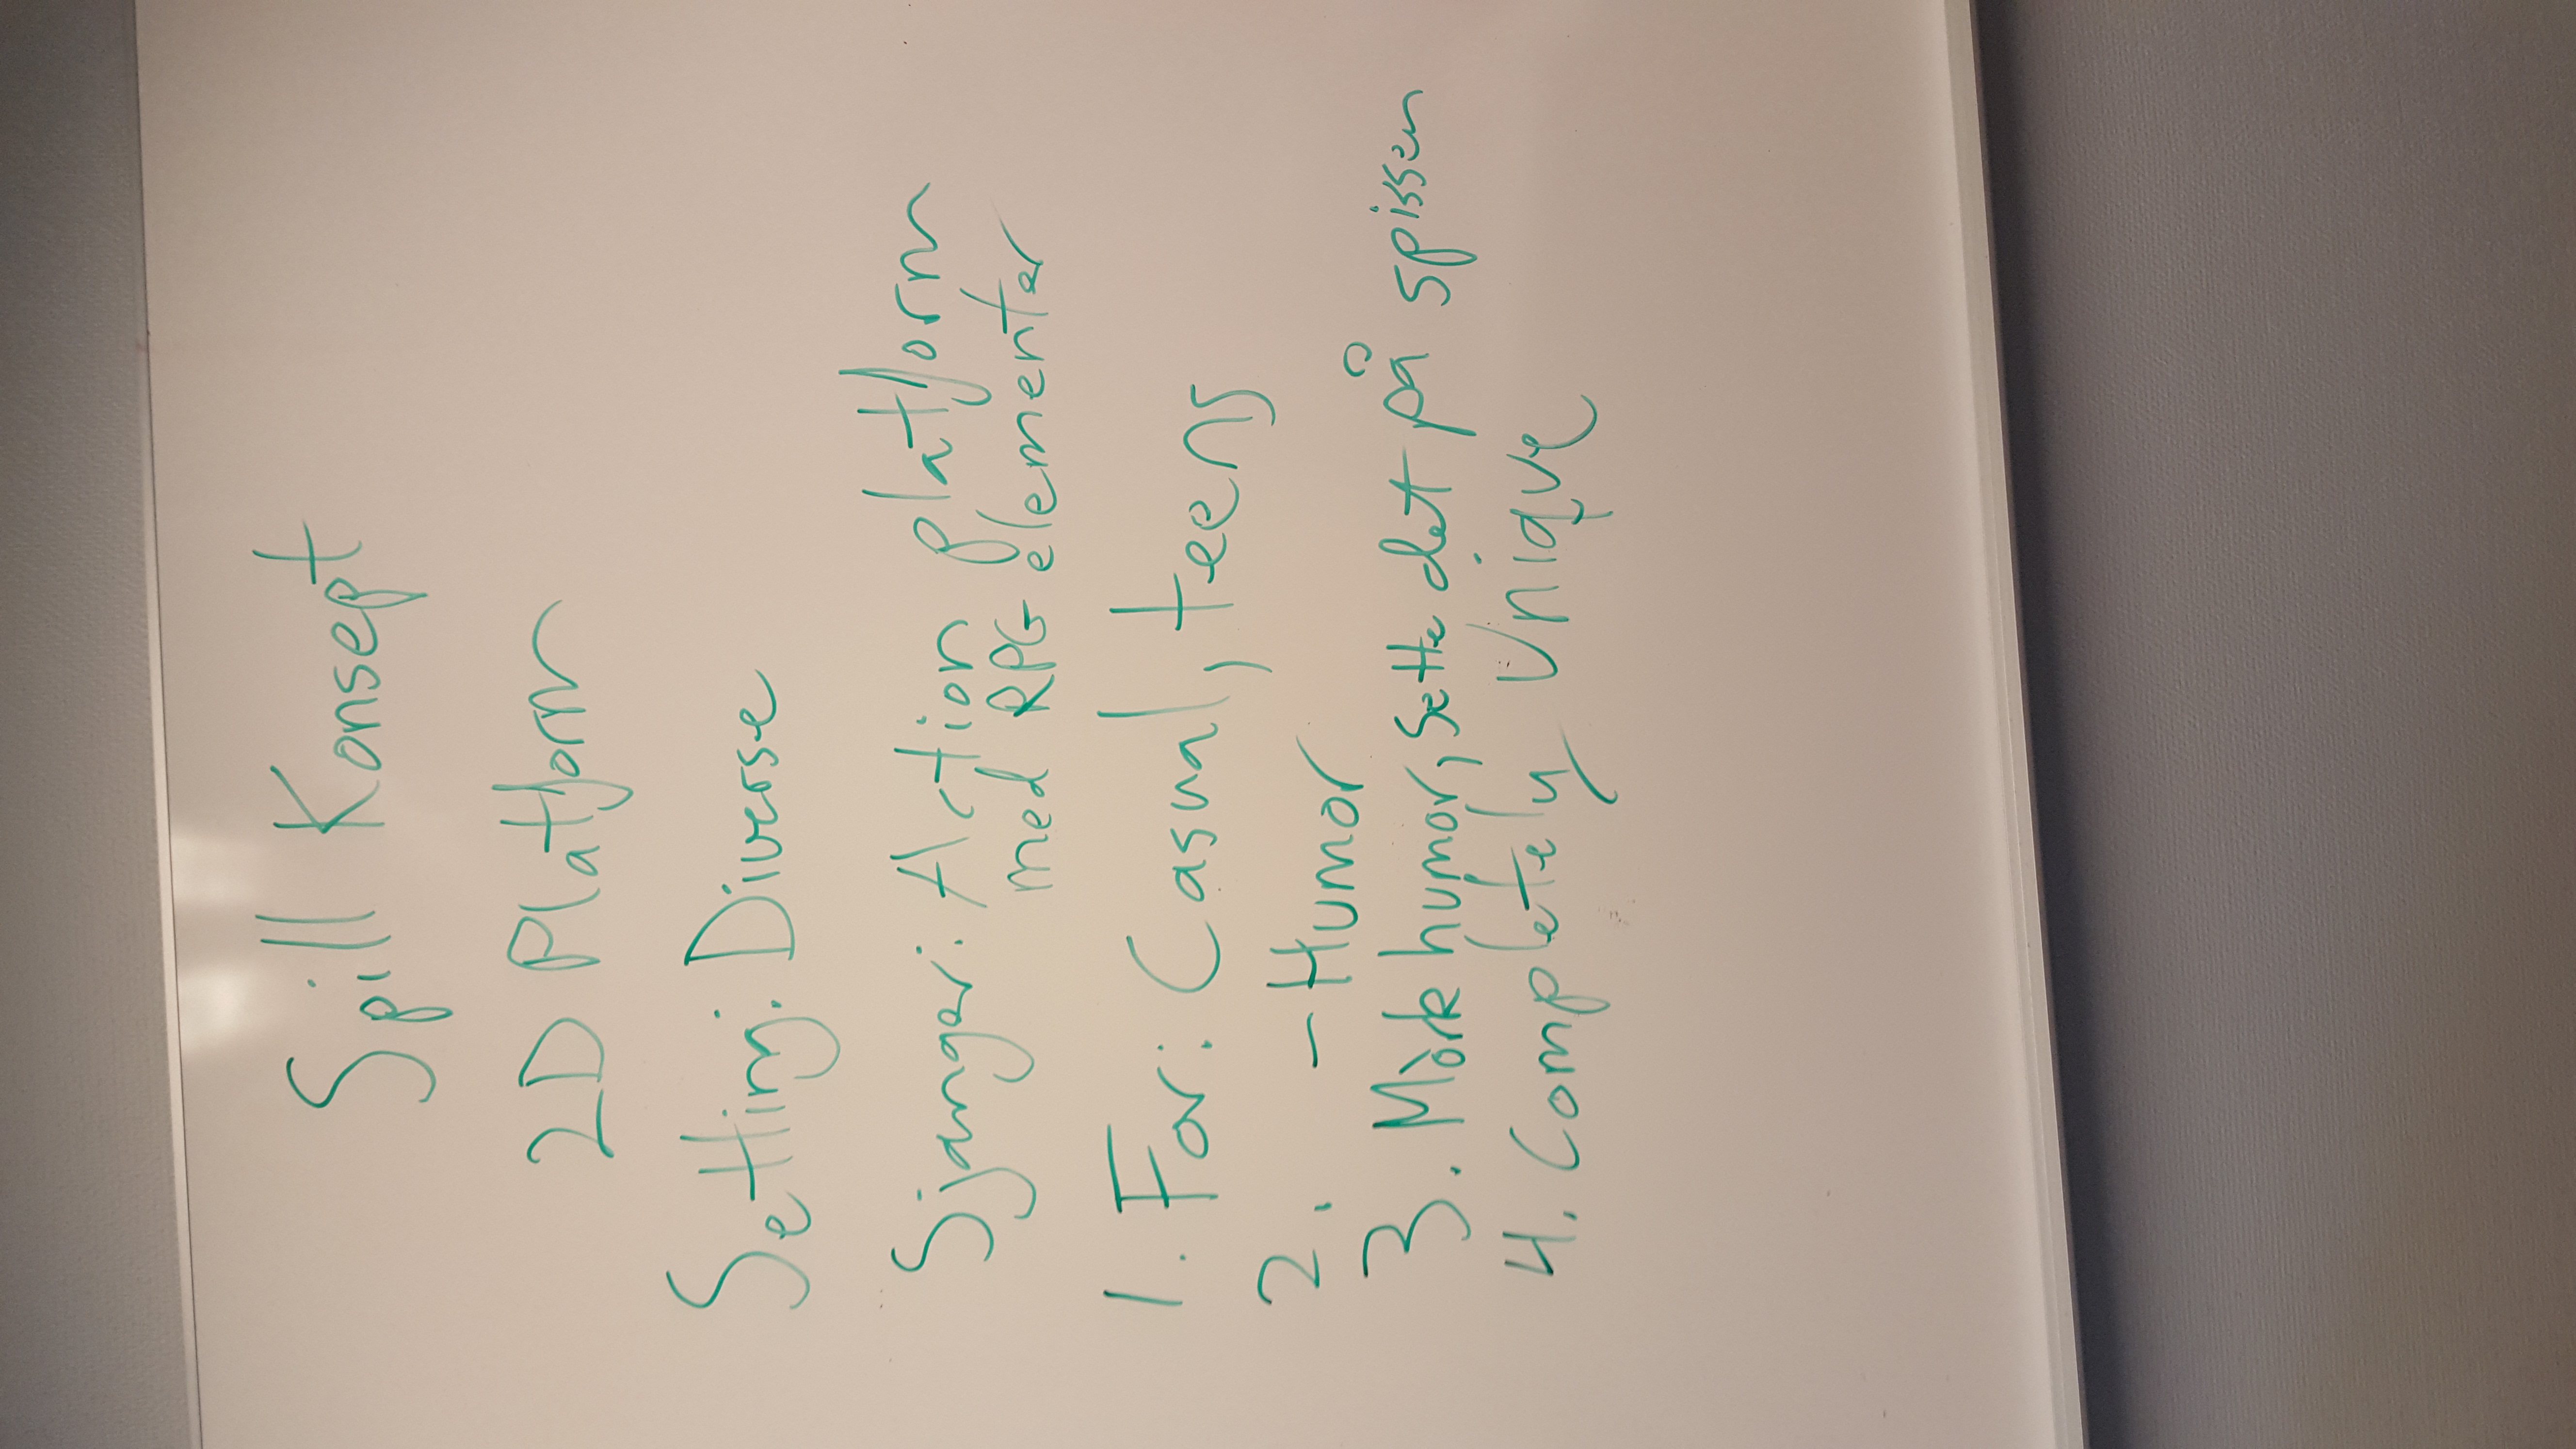 Spill Konsept
2D Platform
Setting: Diverse
Sjanger: Action platform
med RPG elementer
1. For: Casual, teens
2. - Humor
3. Mòrk humor, Sette det på spissen
4. Completely Unique